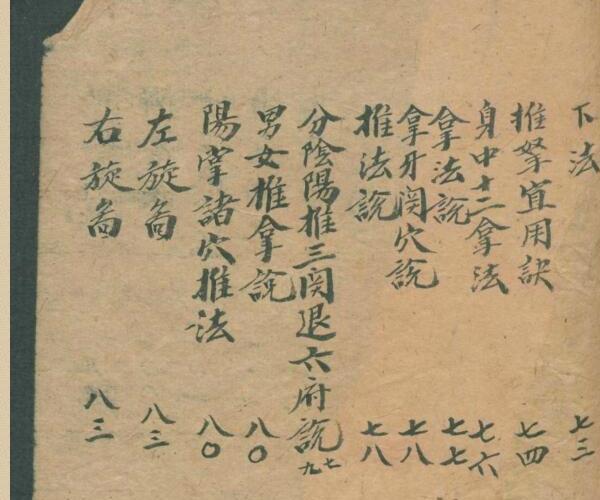 下法 七三
推拏宜用訣 七四
身中十二拿法 七六
拿法說 七七
拿牙関穴說 七八
推法說 七八
分陰陽推三関退六府說 七九
男女推拿說 八〇
陽掌諸穴推法 八〇
左旋啚 八三
右旋啚 八三